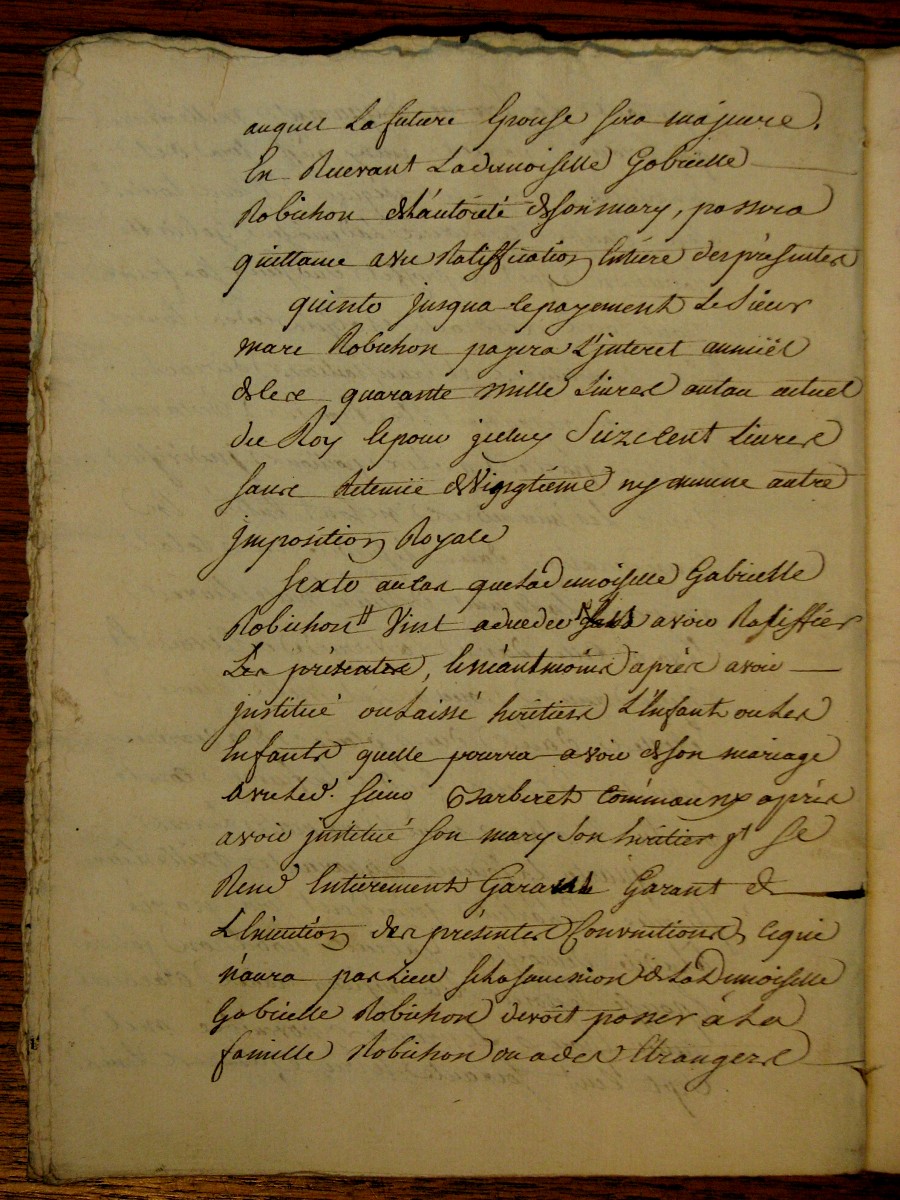 auquel La future Epouse sera majeure.
En Recevant Lademoiselle Gabrielle
Robichon de L'autorité de son mary, passera
quittance avec Ratiffication Entiere des présentes
quinto jusqua cepayement Le Sieur
marc Robichon payera L'jnteret annuël
de les quarante mille Livres autau actuel
du Roy Et pour jceluy Seize cent Livres
sans Retenüe de Vingtiéme ny aucune autre
jmposition Royale
Sexto aucas que Lad.moiselle Gabrielle
Robichon Vint a deceder Sans avoir Ratiffiér
Les présentes, Et néantmoins aprés avoir
jnstitué ou Laissé heritiers L'Enfant ou Les
Enfants quelle pourra avoir de son mariage
avec Led. Sieur Barberet Comme aussy aprés
avoir jnstitué son mary son heritier Le
Rend Entiérement Garant de
L'Execution des présentes Conventions, ce qui
n'aura pas Lieu si La succession de La Demoiselle
Gabrielle Robichon devoit passer à La
famille Robichon ou a des Etrangers